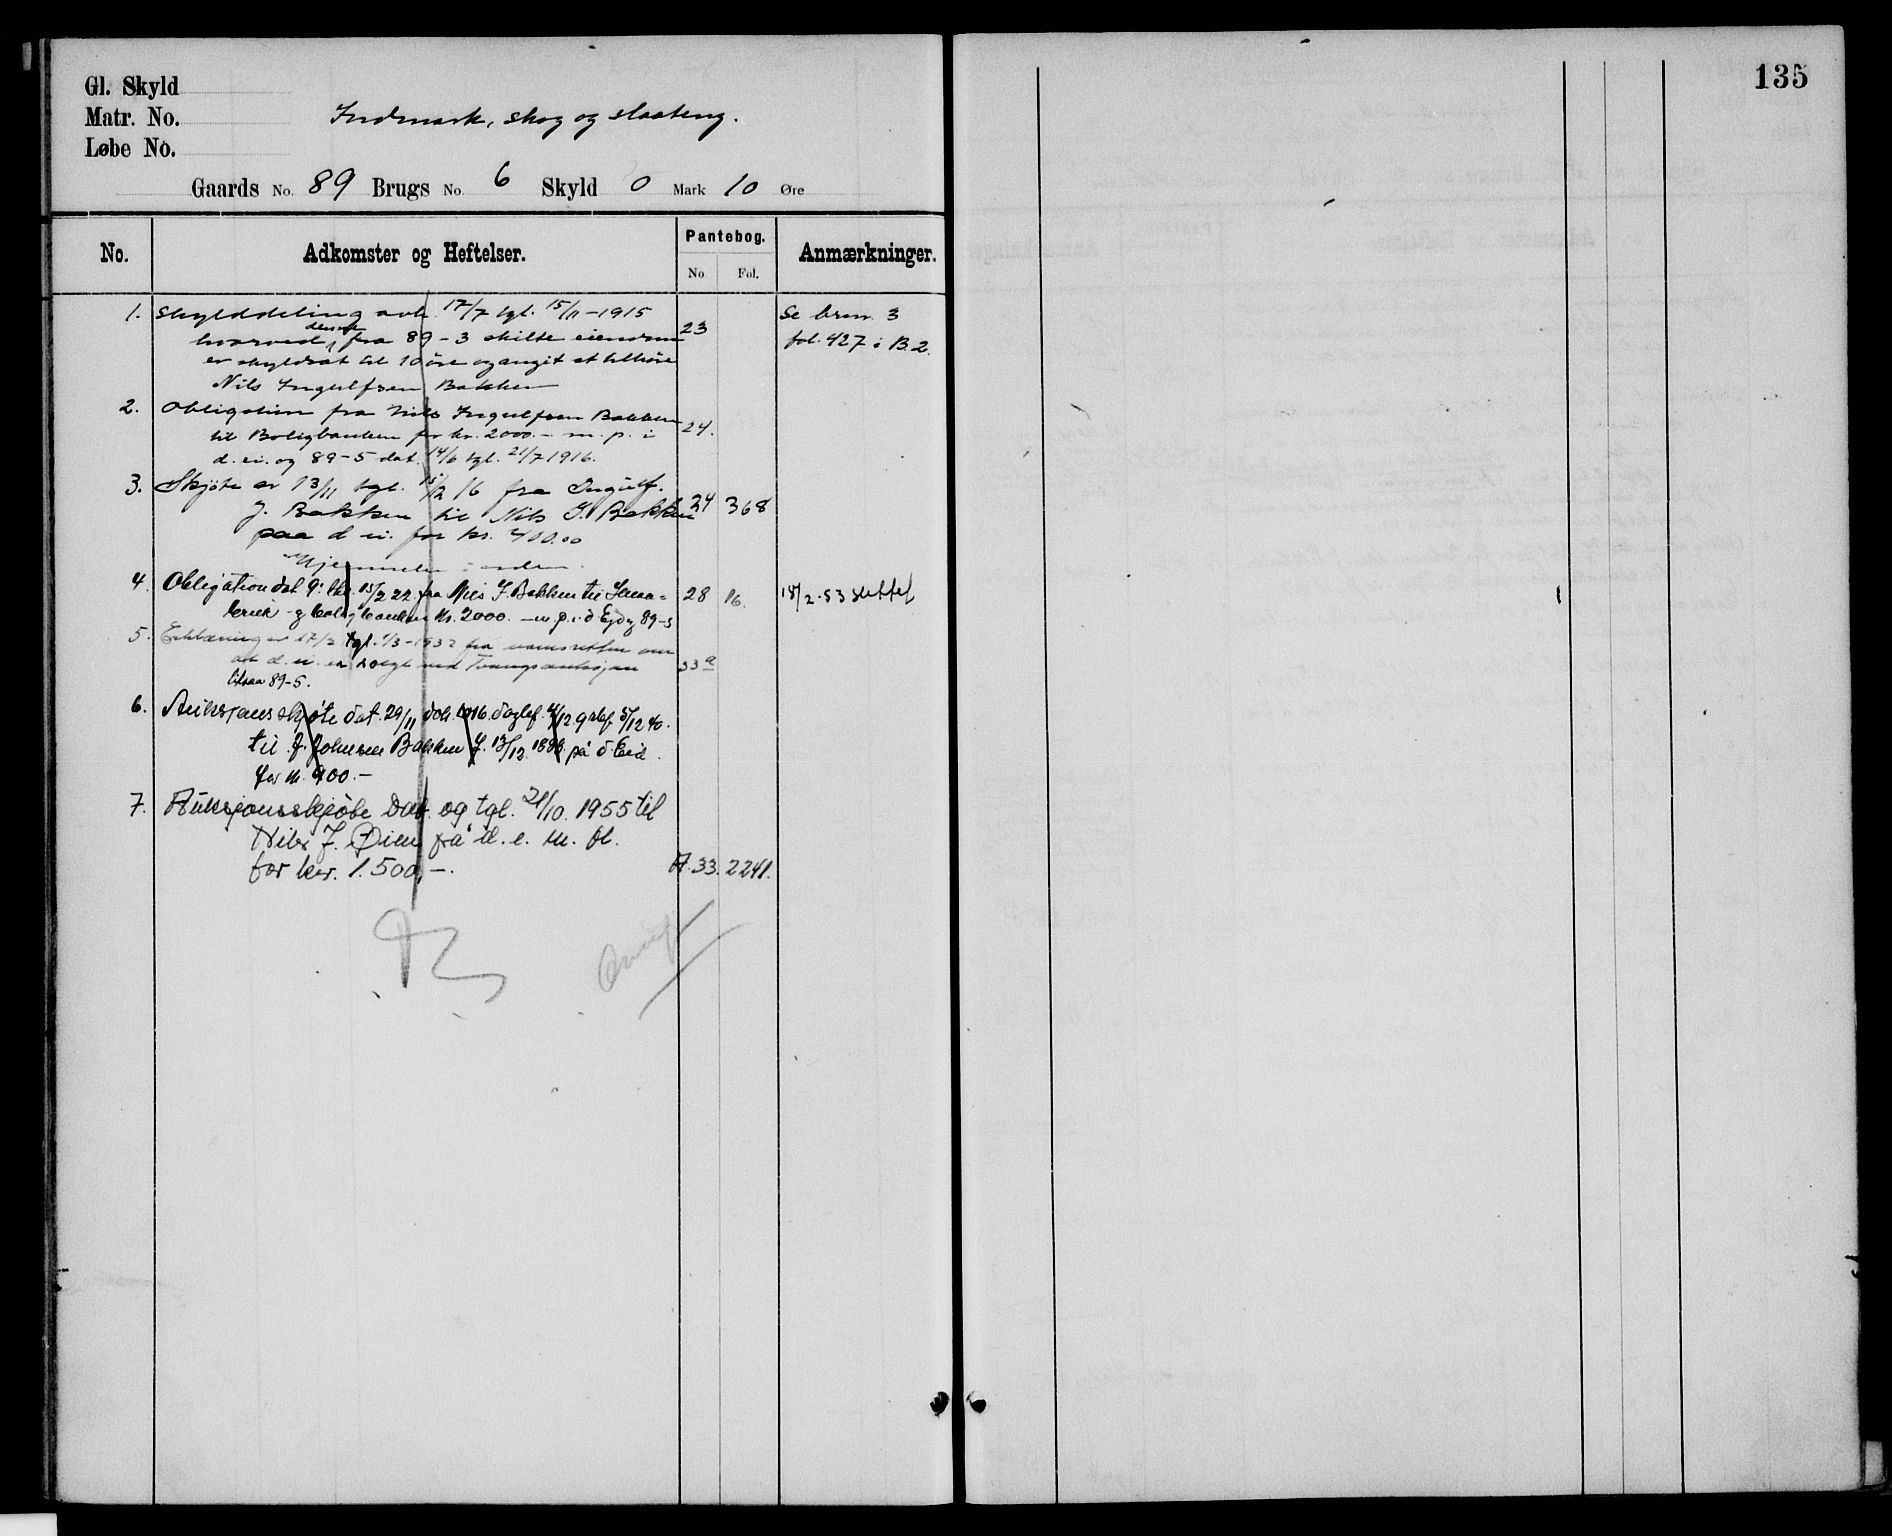 135
Gl. Skyld
Matr. No. Indmark, skog og slaateng.
Løbe No.
Gaards No. 89 Brugs No. 6 Skyld 0 Mark 10 Øre
No. Adkomster og Heftelser. Pantebog. Anmærkninger.
No. Fol.
1. Skylddeling avh. 17/7 tgl. 15/11-1915 Se brnr. 3
hvorved den fra 89-3 skilte eiendom 23 fol. 427 i B.2.
er skyldsat til 10 øre og angit at tilhøre
Nils Ingulfsen Bakken
2. Obligation fra Nils Ingulfsen Bakken
til Boligbanken for kr. 2000.- m. p. i 24.
d. ei. og 89-5 dat. 14/6 tgl. 21/7 1916.
3. Skjøte av 13/11 tgl. 15/12 16 fra Ingulf
J. Bakken til Nils I. Bakken 24 368
paa d. ei. for kr. 400.00
Hjemmelen i orden.
4. Obligation dat 9. tgl. 15/2 22 fra Nils I. Bakken til Smaa= 28 16. 18/2-53 slettet
bruk og bolig banken kr. 2000.- m p. i d Ejd og 89-5
5. Erklæring av 17/2 tgl. 1/3-1932 fra namsretten om
at d. ei. er solgt ved Tvangsauksjon 33a
likesaa 89-5.
6. Auksjonsskjøte dat. 29/11 dok. 1916. dagbf. 4/12 g 5/12 40.
til J. Johnsen Bakken f. 13/12 1886 på d Eied.
for kr. 900.-
7. Auksjonsskjøte dat. og tgl. 21/10. 1955 til
Nils J. Øien på d. e. m. fl.
for kr. 1.500,-. A. 33. 2241.